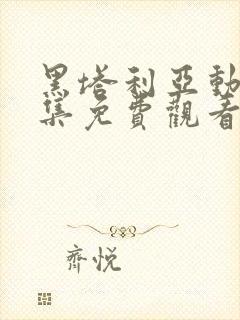 黑塔利亞動
集免費觀看
齊悅